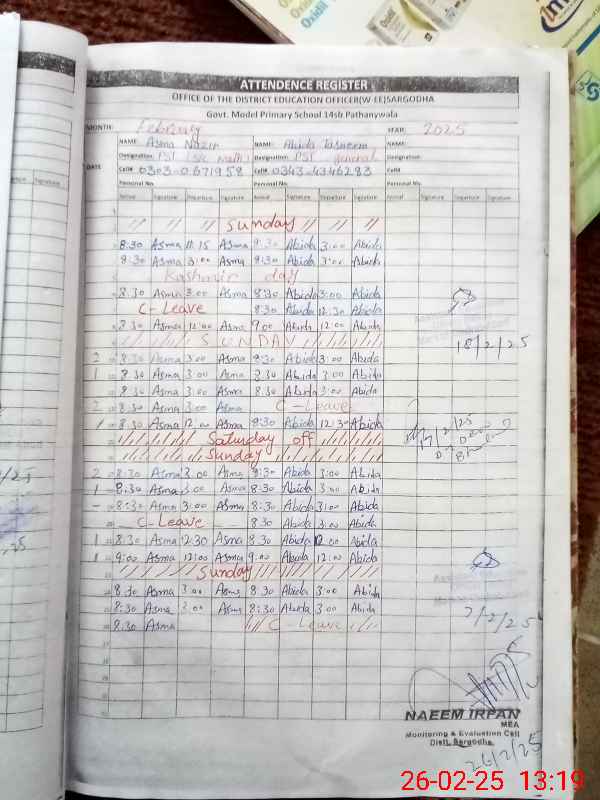 ATTENDENCE REGISTER
OFFICE OF THE DISTRICT EDUCATION OFFICER(W-EE)SARGODHA
Govt. Model Primary School 14sb Pathanywala
MONTH: February YEAR: 2025
NAME: Asma Nazir NAME: Abida Tasneem NAME:
DATE Designation: PST Designation: PST general Designation:
Cell#: 0303-0671958 Cell#: 0343-4346283 Cell#
Personal No. Personal No. Personal No.
Arrival Signature Departure Signature Arrival Signature Departure Signature Arrival Signature Departure Signature
Sunday
8:30 Asma 11:15 Asma 8:30 Abida 3:00 Abida
8:30 Asma 3:00 Asma 8:30 Abida 3:00 Abida
Kashmir day
8:30 Asma 3:00 Asma 8:30 Abida 3:00 Abida
C-Leave 8:30 Abida 12:30 Abida
8:30 Asma 12:00 Asma 9:00 Abida 12:00 Abida
SUNDAY
18/2/25
2 8:30 Asma 3:00 Asma 8:30 Abida 3:00 Abida
1 8:30 Asma 3:00 Asma 8:30 Abida 3:00 Abida
8:30 Asma 3:00 Asma 8:30 Abida 3:00 Abida
2 8:30 Asma 3:00 Asma C-Leave
1 8:30 Asma 12:00 Asma 8:30 Abida 12:30 Abida
17/2/25
Saturday off
Sunday
2 8:30 Asma 3:00 Asma 8:30 Abida 3:00 Abida
1 8:30 Asma 3:00 Asma 8:30 Abida 3:00 Abida
- 8:30 Asma 3:00 Asma 8:30 Abida 3:00 Abida
C-Leave 8:30 Abida 3:00 Abida
1 8:30 Asma 12:30 Asma 8:30 Abida 12:00 Abida
1 9:00 Asma 12:00 Asma 9:00 Abida 12:00 Abida
Sunday
8:30 Asma 3:00 Asma 8:30 Abida 3:00 Abida
8:30 Asma 3:00 Asma 8:30 Abida 3:00 Abida
8:30 Asma C-Leave
/2/25
NAEEM IRFAN
MEA
Monitoring & Evaluation Cell
Distt. Sargodha.
26/2/25
26-02-25 13:19